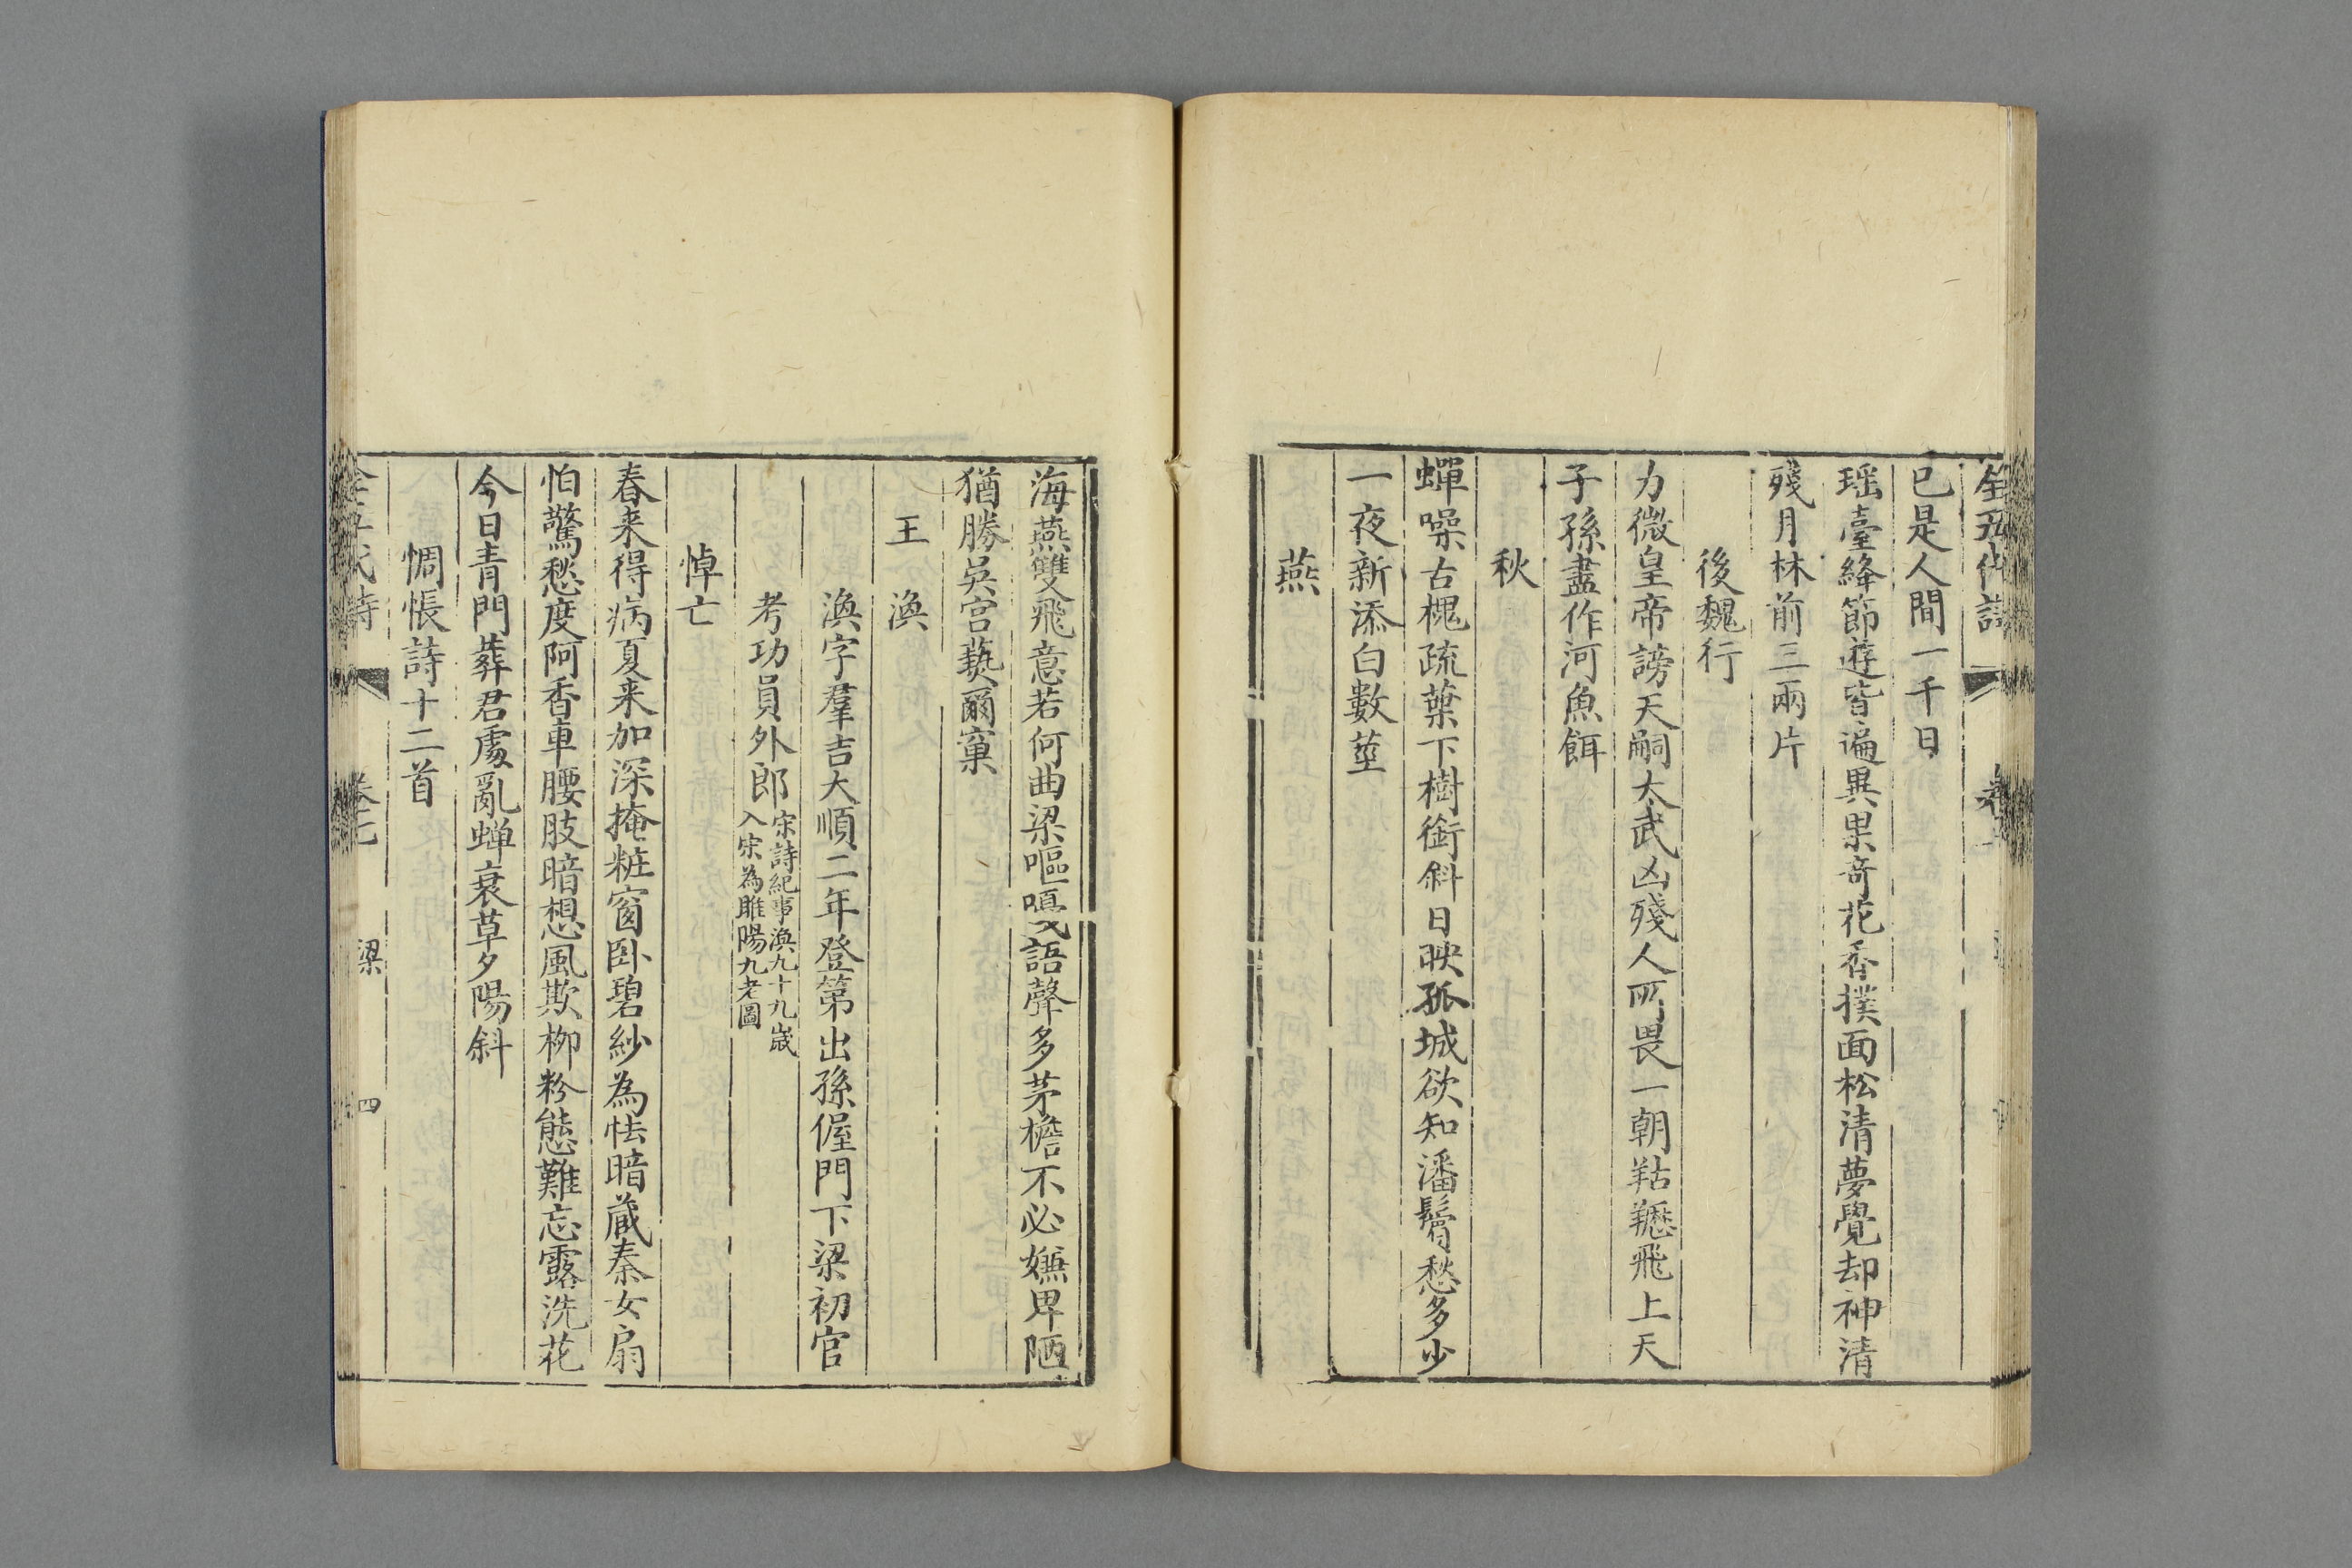 全五代詩 卷七
已是人間一千日
瑶臺絳節遊皆遍異果奇花香撲面松清夢覺却神清
殘月林前三兩片
後魏行
力微皇帝謗天嗣太武凶殘人所畏一朝羖𤡑飛上天
子孫盡作河魚餌
秋
蟬噪古槐疏葉下樹銜斜日映孤城欲知潘鬢愁多少
一夜新添白數莖
燕
海燕雙飛意若何曲梁嘔嘎語聲多茅檐不必嫌卑陋
猶勝吳宮爇爾窠
王渙
渙字羣吉大順二年登第出孫偓門下梁初官
考功員外郎宋詩紀事渙九十九歲
入宋為睢陽九老圖
悼亡
春来得病夏来加深掩粧窗臥碧紗為怯暗蔵秦女扇
怕驚愁度阿香車腰肢暗想風欺柳粉態難忘露洗花
今日青門葬君處亂蟬衰草夕陽斜
惆悵詩十二首
全五代詩 卷七 梁 四